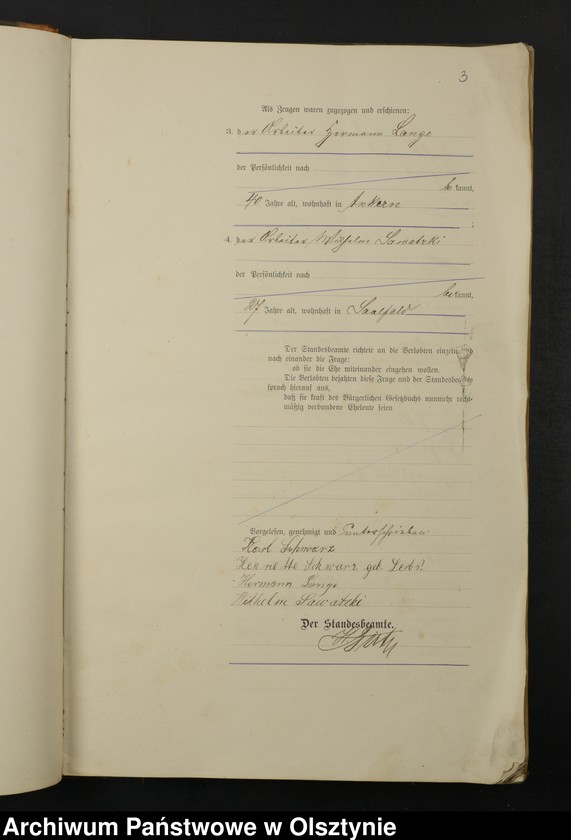 3
Als Zeugen waren zugezogen und erschienen:
3. der Arbeiter Hermann Lange
der Persönlichkeit nach
be kannt,
40 Jahre alt, wohnhaft in Ankern
;
4. der Arbeiter Wilhelm Sawatzki
der Persönlichkeit nach
be kannt,
27 Jahre alt, wohnhaft in Saalfeld
Der Standesbeamte richtete an die Verlobten einzeln
nach einander die Frage:
ob sie die Ehe miteinander eingehen wollen.
Die Verlobten bejahten diese Frage und der Standesbeamte
sprach hierauf aus,
daß sie kraft des Bürgerlichen Gesetzbuchs nunmehr recht-
mäßig verbundene Eheleute seien
Vorgelesen, genehmigt und unterschrieben
Karl Schwarz
Henriette Schwarz geb.
Hermann Lange
Wilhelm Sawatzki
Der Standesbeamte.
Archiwum Państwowe w Olsztynie